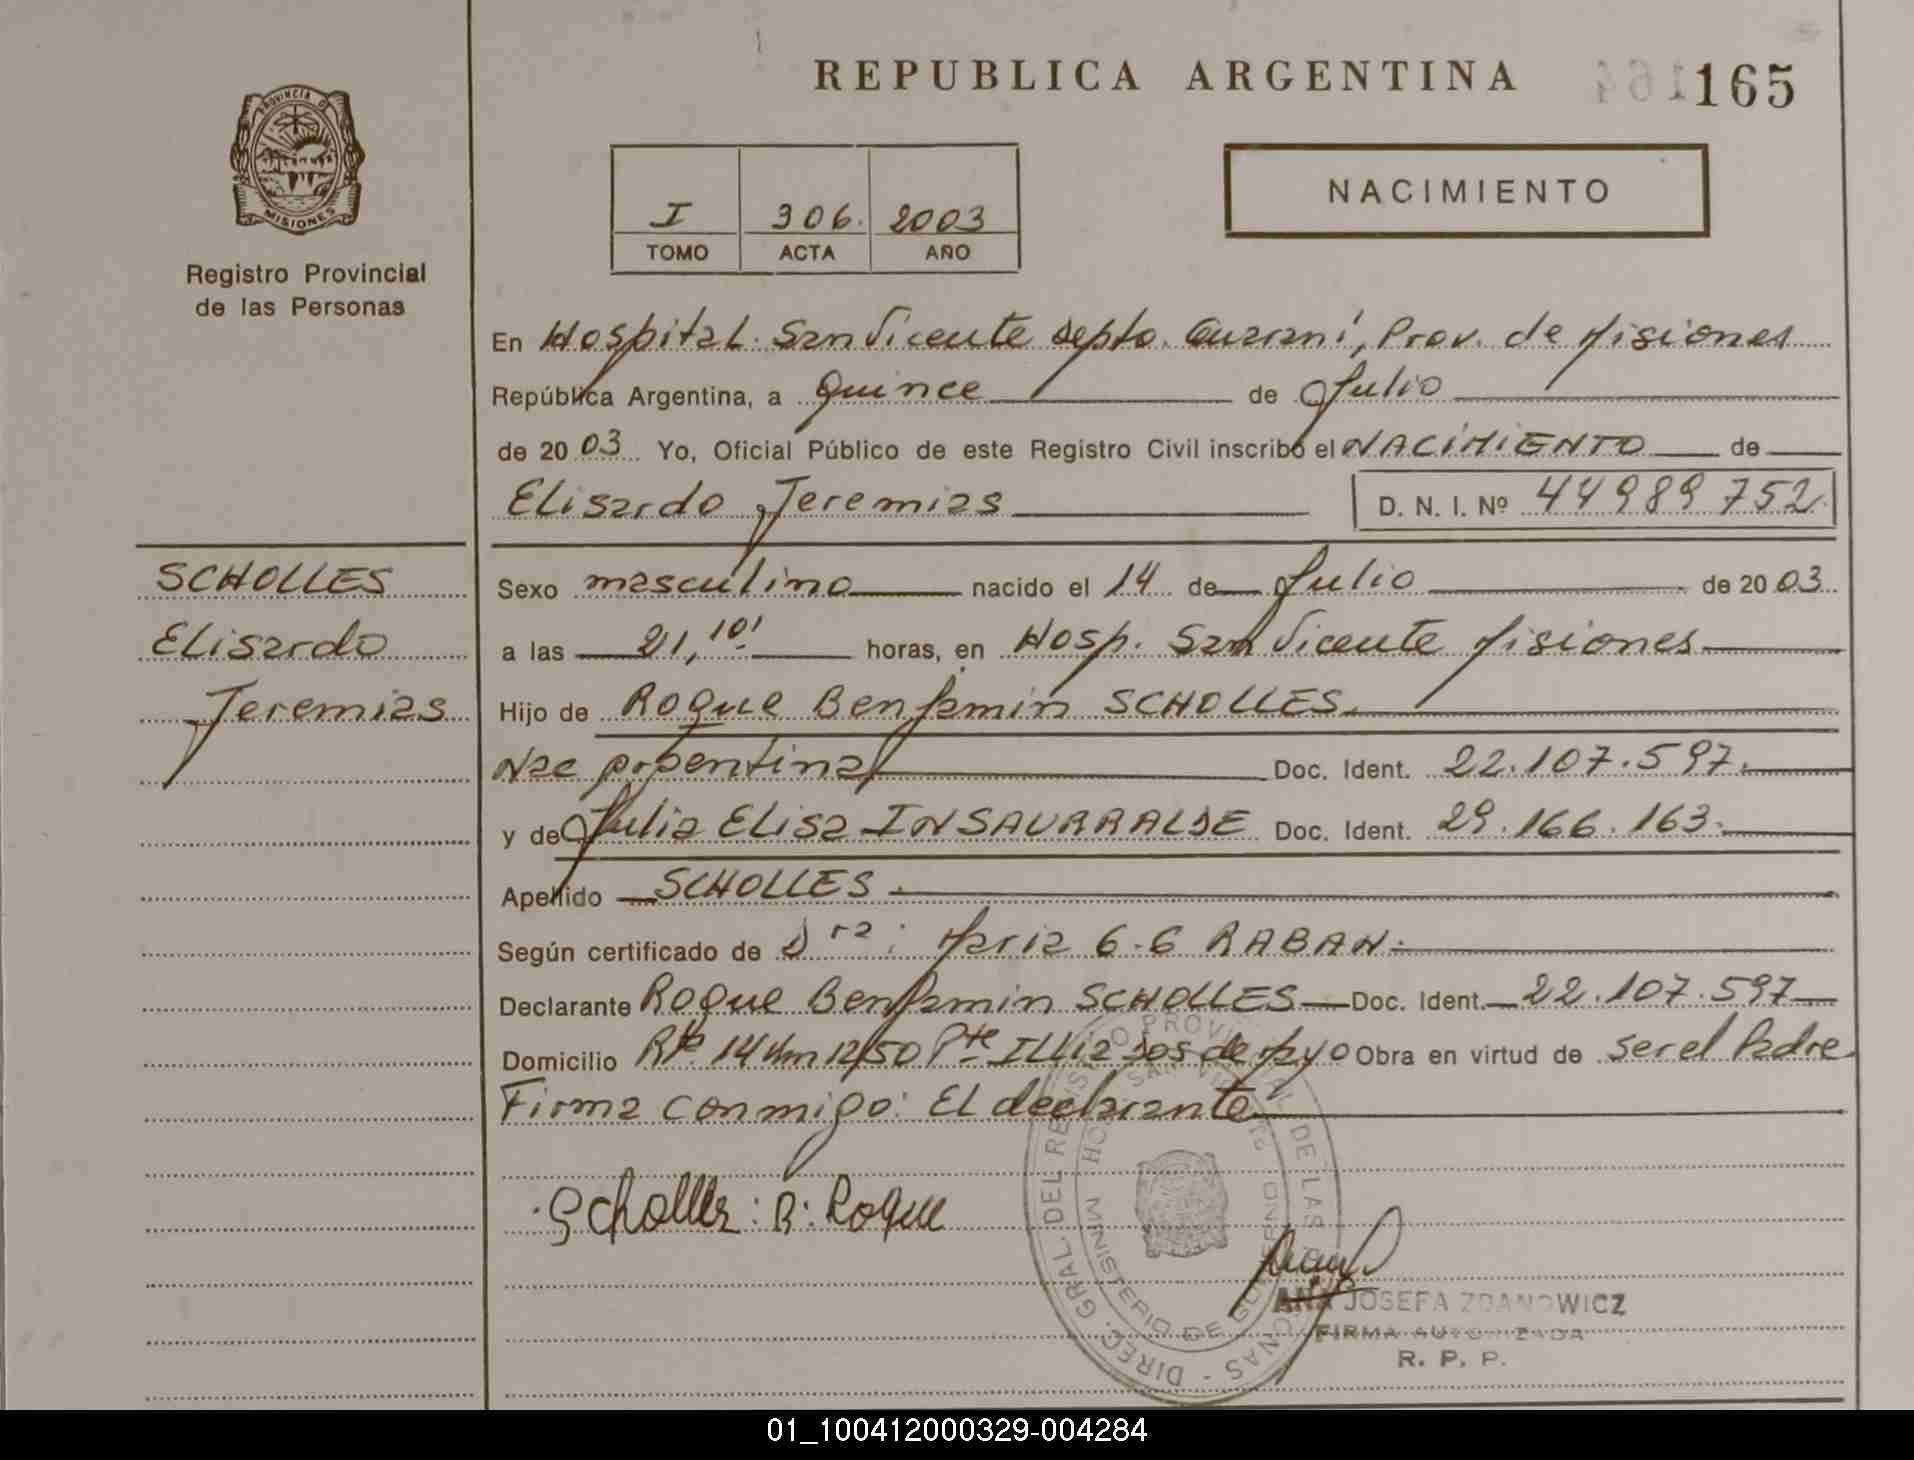 REPUBLICA ARGENTINA
165
PROVINCIA DE
MISIONES
Registro Provincial
de las Personas
I 306. 2003
TOMO ACTA AÑO
NACIMIENTO
En Hospital San Vicente Depto. Guaraní, Prov. de Misiones
República Argentina, a Quince de Julio
de 2003 Yo, Oficial Público de este Registro Civil inscribo el NACIMIENTO de
Elisardo Jeremias D. N. I. Nº 44989752
SCHOLLES
Elisardo
Jeremias
Sexo masculino nacido el 14 de Julio de 2003
a las 21,10' horas, en Hosp. San Vicente Misiones
Hijo de Roque Benjamin SCHOLLES
Nac argentina Doc. Ident. 22.107.597.
y de Julia Elisa INSAURRALDE Doc. Ident. 29.166.163.
Apellido SCHOLLES.
Según certificado de Dra: Maria G.G RABAN.
Declarante Roque Benjamin SCHOLLES Doc. Ident. 22.107.597
Domicilio Rta 14 Km 12/50 Pte Illia Dos de Mayo Obra en virtud de ser el Padre
Firma conmigo: El declarante
Scholles: B: Roque
DIREC. GRAL. DEL REGISTRO PROVINCIAL DE LAS PERSONAS
MINISTERIO DE GOBIERNO
ANA JOSEFA ZDANOWICZ
FIRMA AUTORIZADA
R. P. P.
01_100412000329-004284